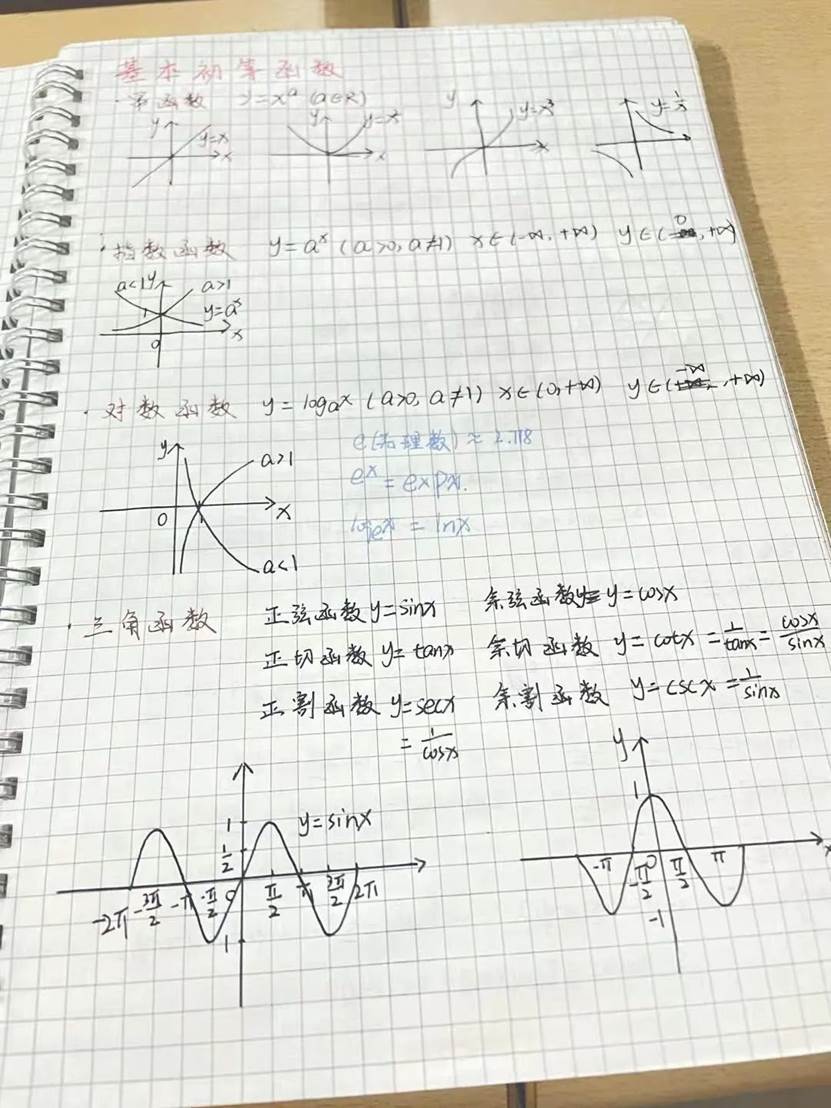 基本初等函数
·幂函数 y=xᵃ (a∈R)
y y=x x
y y=x² x
y y=x³ x
y=1/x
·指数函数 y=aˣ (a>0, a≠1) x∈(-∞, +∞) y∈(0, +∞)
a<1 y a>1
1 y=aˣ
0 x
·对数函数 y=logₐx (a>0, a≠1) x∈(0, +∞) y∈(-∞, +∞)
e(无理数)≈2.718
eˣ=expx.
logₑx=lnx
y a>1
0 x
a<1
·三角函数 正弦函数 y=sinx 余弦函数 y=cosx
正切函数 y=tanx 余切函数 y=cotx=1/tanx=cosx/sinx
正割函数 y=secx 余割函数 y=cscx=1/sinx
=1/cosx
1 y=sinx
1/2
-2π -3π/2 -π -π/2 0 π/2 π 3π/2 2π
1
y
1
-π -π/2 0 π/2 π x
-1